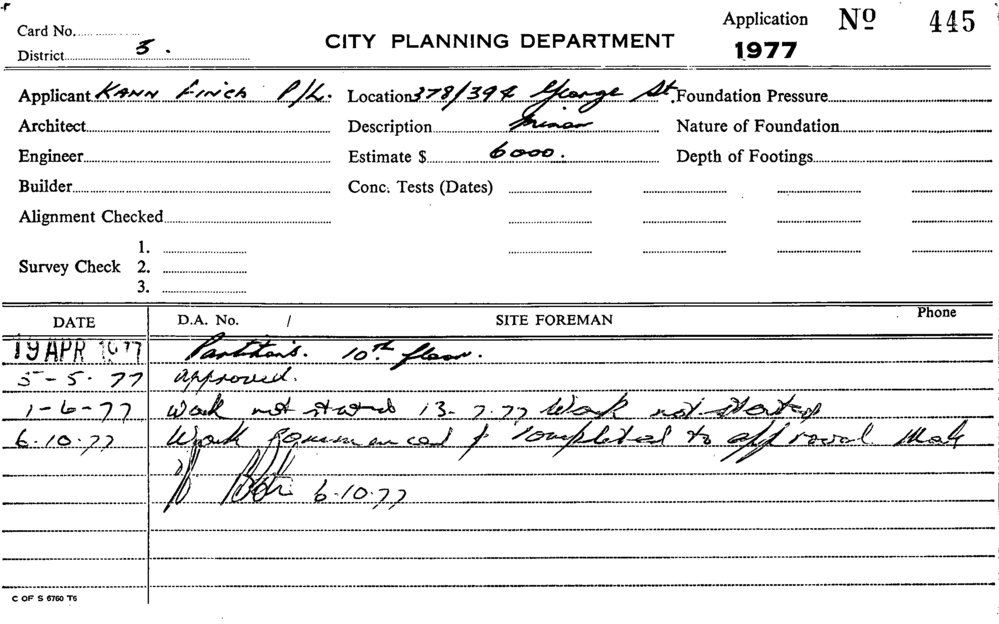 Card No.
District 3.
CITY PLANNING DEPARTMENT
Application Nº 445
1977
Applicant KANN FINCH P/L. Location 378/394 George St. Foundation Pressure
Architect Description Minor Nature of Foundation
Engineer Estimate $ 6000. Depth of Footings
Builder Conc. Tests (Dates)
Alignment Checked
Survey Check 1.
2.
3.
DATE D.A. No. / SITE FOREMAN Phone
19 APR 1977 Partitions. 10th floor.
5-5-77 approved.
1-6-77 Work not started 13-7-77 Work not started
6-10-77 Work commenced & completed to approval
6-10-77
C OF S 6760 T6